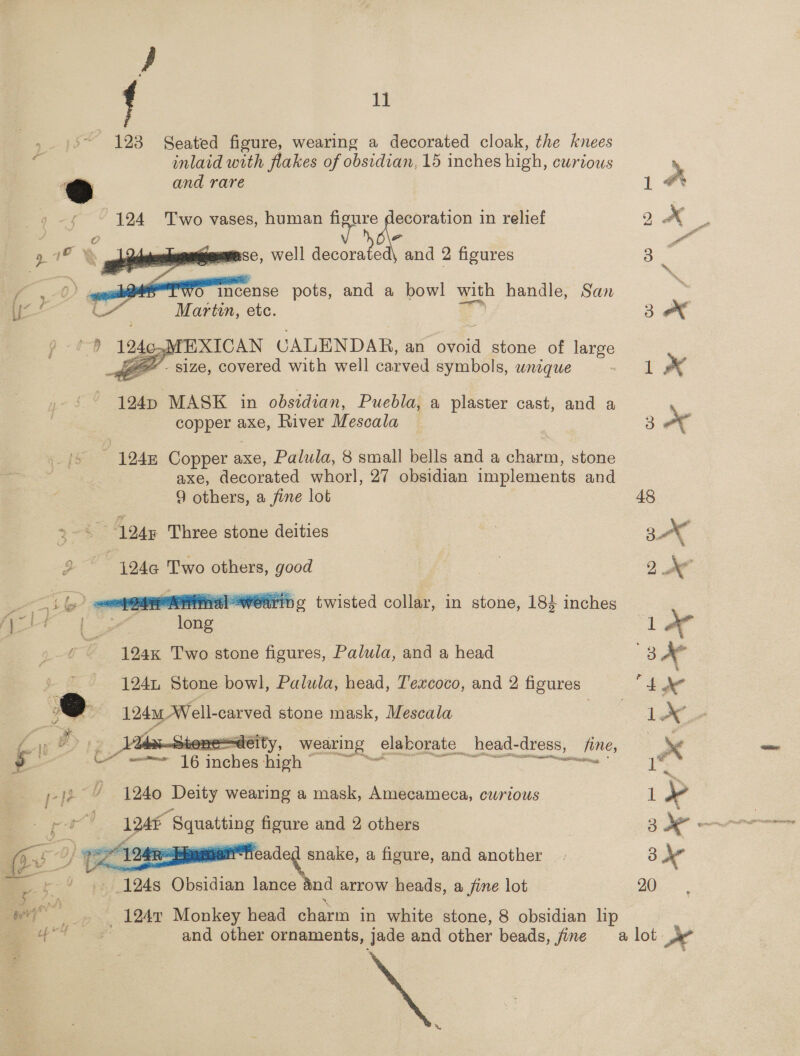 11
123 Seated figure, wearing a decorated cloak, the knees
inlaid with flakes of obsidian, 15 inches high, curious
and rare 1
124 Two vases, human figure decoration in relief 2
well decorated and 2 figures 3
incense pots, and a bowl with handle, San
Martin, etc. 3
124c MEXICAN CALENDAR, an ovoid stone of large
size, covered with well carved symbols, unique - 1
124D MASK in obsidian, Puebla, a plaster cast, and a
copper axe, River Mescala 3
124E Copper axe, Palula, 8 small bells and a charm, stone
axe, decorated whorl, 27 obsidian implements and
9 others, a fine lot 48
124F Three stone deities 3
124G Two others, good 2
twisted collar, in stone, 18½ inches
long 1
124K Two stone figures, Palula, and a head 3
124L Stone bowl, Palula, head, Texcoco, and 2 figures 4
124M Well-carved stone mask, Mescala 1
deity, wearing elaborate head-dress, fine,
16 inches high 1
124O Deity wearing a mask, Amecameca, curious 1
Squatting figure and 2 others 3
headed snake, a figure, and another 3
124S Obsidian lance and arrow heads, a fine lot 20
124T Monkey head charm in white stone, 8 obsidian lip
and other ornaments, jade and other beads, fine a lot